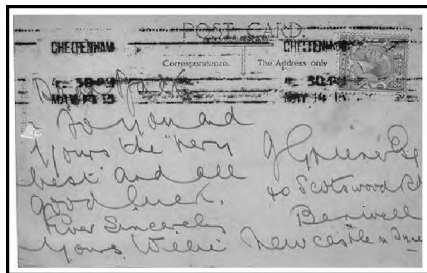 POST CARD.
CHELTENHAM CHELTENHAM
Correspondence. The Address only
MAY 14
To you and
yours the "very
best" and all
good luck.
Ever Sincerely
Yours Willie
40 Scotswood Rd
Benwell
Newcastle n Tyne